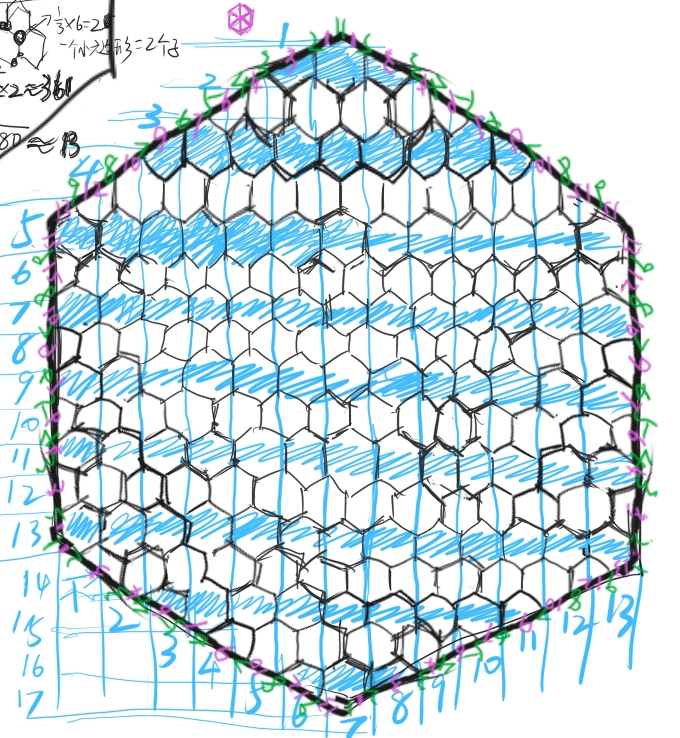 1/3×6=2个
一个小六边形=2个子
×2≈361
≈13
1
2
3
4
5
6
7
8
9
10
11
12
13
14
15
16
17
1 2 3 4 5 6 7 8 9 10 11 12 13